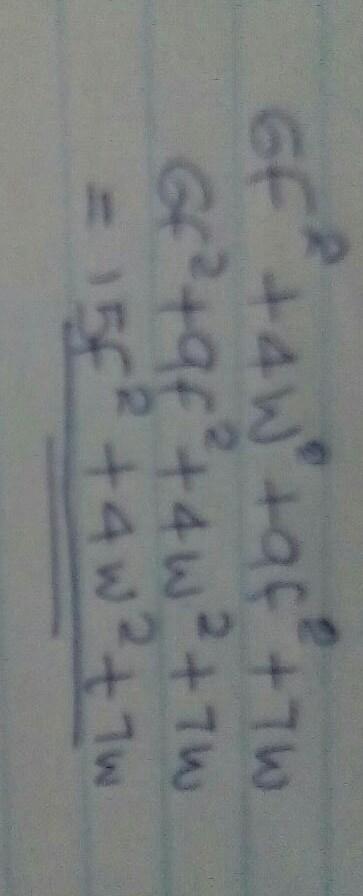 6f² + 4w² + 9f² + 7w
6f² + 9f² + 4w² + 7w
= 15f² + 4w² + 7w